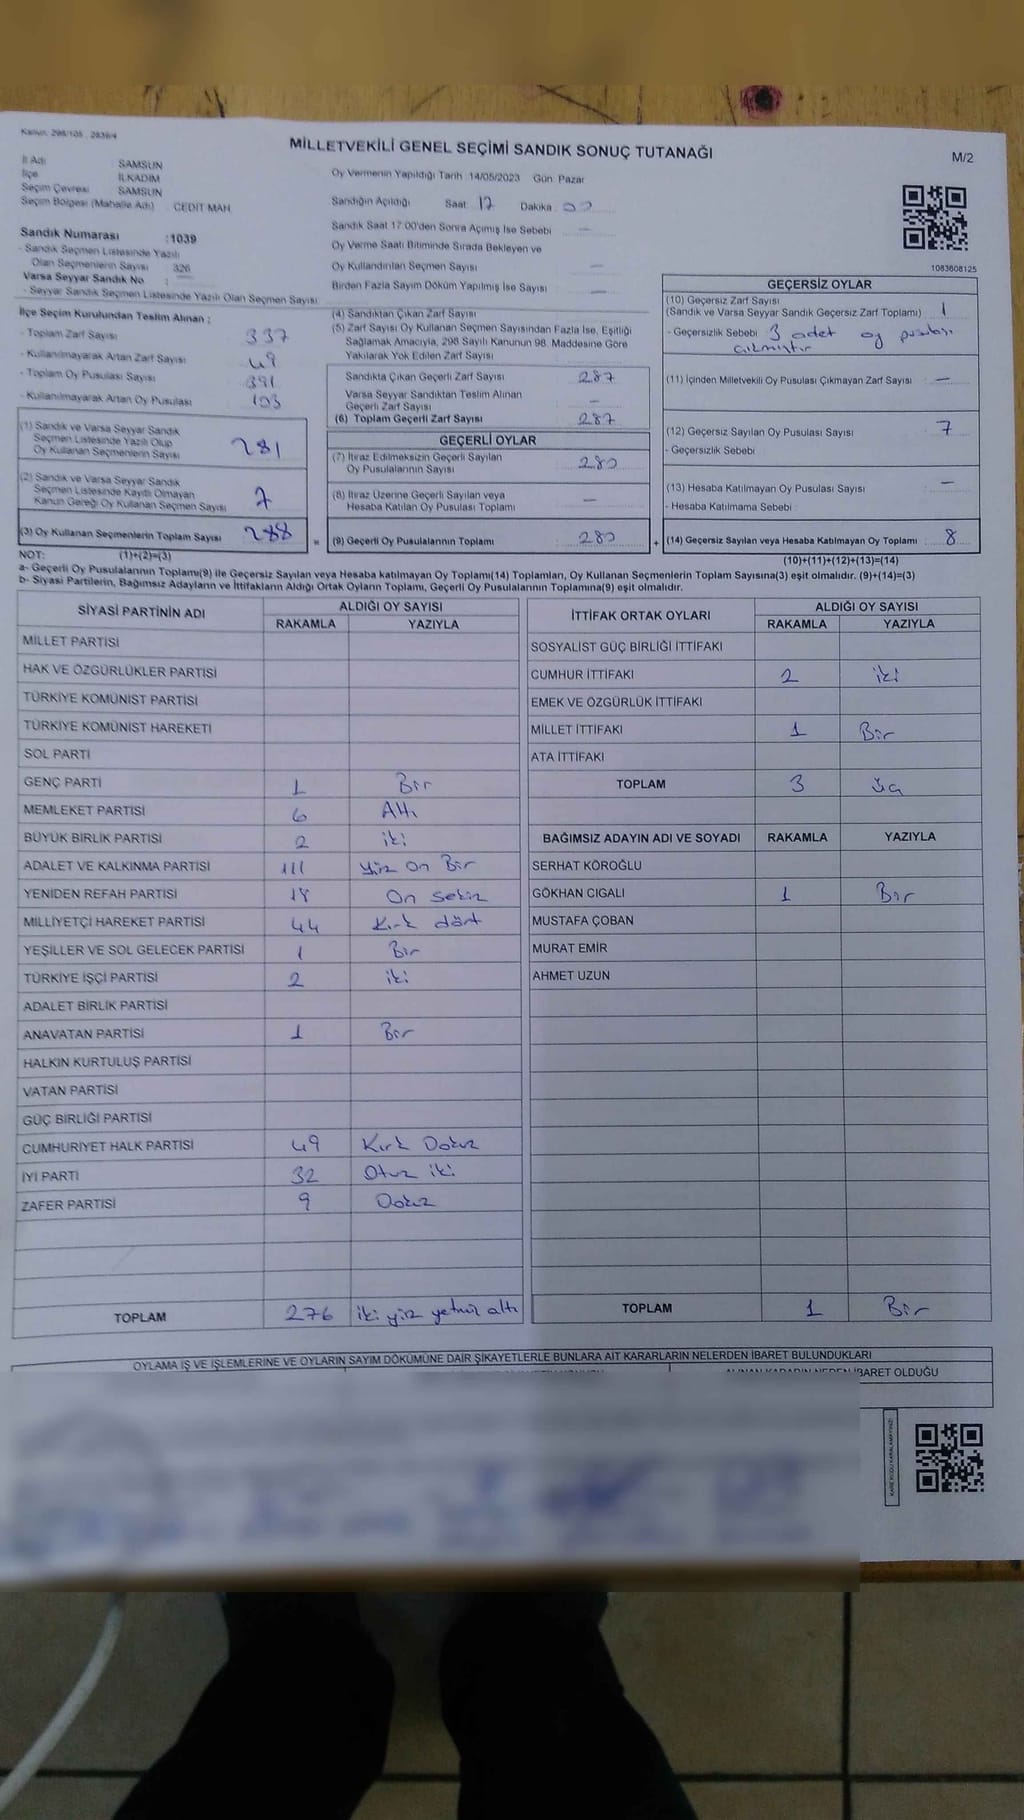 Kanun. 298/105 . 2839/4
MİLLETVEKİLİ GENEL SEÇİMİ SANDIK SONUÇ TUTANAĞI
M/2
İl Adı SAMSUN
İlçe İLKADIM
Seçim Çevresi SAMSUN
Seçim Bölgesi (Mahalle Adı) CEDİT MAH
Oy Vermenin Yapıldığı Tarih :14/05/2023 Gün: Pazar
Sandığın Açıldığı Saat 17 Dakika 00
Sandık Saat 17:00'den Sonra Açımış İse Sebebi —
Oy Verme Saati Bitiminde Sırada Bekleyen ve
Oy Kullandırılan Seçmen Sayısı —
Birden Fazla Sayım Döküm Yapılmış İse Sayısı —
Sandık Numarası :1039
- Sandık Seçmen Listesinde Yazılı
Olan Seçmenlerin Sayısı 326
Varsa Seyyar Sandık No : —
- Seyyar Sandık Seçmen Listesinde Yazılı Olan Seçmen Sayısı
1083608125
İlçe Seçim Kurulundan Teslim Alınan :
- Toplam Zarf Sayısı 337
- Kullanılmayarak Artan Zarf Sayısı 49
- Toplam Oy Pusulası Sayısı 391
- Kullanılmayarak Artan Oy Pusulası 103
(1) Sandık ve Varsa Seyyar Sandık
Seçmen Listesinde Yazılı Olup
Oy Kullanan Seçmenlerin Sayısı 281
(2) Sandık ve Varsa Seyyar Sandık
Seçmen Listesinde Kayıtlı Olmayan
Kanun Gereği Oy Kullanan Seçmen Sayısı 7
(3) Oy Kullanan Seçmenlerin Toplam Sayısı 288
(4) Sandıktan Çıkan Zarf Sayısı
(5) Zarf Sayısı Oy Kullanan Seçmen Sayısından Fazla İse, Eşitliği
Sağlamak Amacıyla, 298 Sayılı Kanunun 98. Maddesine Göre
Yakılarak Yok Edilen Zarf Sayısı
Sandıkta Çıkan Geçerli Zarf Sayısı 287
Varsa Seyyar Sandıktan Teslim Alınan
Geçerli Zarf Sayısı —
(6) Toplam Geçerli Zarf Sayısı 287
GEÇERLİ OYLAR
(7) İtiraz Edilmeksizin Geçerli Sayılan
Oy Pusulalarının Sayısı 280
(8) İtiraz Üzerine Geçerli Sayılan veya
Hesaba Katılan Oy Pusulası Toplamı —
= (9) Geçerli Oy Pusulalarının Toplamı 280
GEÇERSİZ OYLAR
(10) Geçersiz Zarf Sayısı
(Sandık ve Varsa Seyyar Sandık Geçersiz Zarf Toplamı) 1
- Geçersizlik Sebebi 3 adet oy pusulası
çıkmıştır
(11) İçinden Milletvekili Oy Pusulası Çıkmayan Zarf Sayısı : —
(12) Geçersiz Sayılan Oy Pusulası Sayısı 7
- Geçersizlik Sebebi
(13) Hesaba Katılmayan Oy Pusulası Sayısı —
- Hesaba Katılmama Sebebi :
+ (14) Geçersiz Sayılan veya Hesaba Katılmayan Oy Toplamı : 8
NOT: (1)+(2)=(3)
(10)+(11)+(12)+(13)=(14)
a- Geçerli Oy Pusulalarının Toplamı(9) ile Geçersiz Sayılan veya Hesaba katılmayan Oy Toplamı(14) Toplamları, Oy Kullanan Seçmenlerin Toplam Sayısına(3) eşit olmalıdır. (9)+(14)=(3)
b- Siyasi Partilerin, Bağımsız Adayların ve İttifakların Aldığı Ortak Oyların Toplamı, Geçerli Oy Pusulalarının Toplamına(9) eşit olmalıdır.
SİYASİ PARTİNİN ADI ALDIĞI OY SAYISI
RAKAMLA YAZIYLA
MİLLET PARTİSİ
HAK VE ÖZGÜRLÜKLER PARTİSİ
TÜRKİYE KOMÜNİST PARTİSİ
TÜRKİYE KOMÜNİST HAREKETİ
SOL PARTİ
GENÇ PARTİ 1 Bir
MEMLEKET PARTİSİ 6 Altı
BÜYÜK BİRLİK PARTİSİ 2 iki
ADALET VE KALKINMA PARTİSİ 111 Yüz On Bir
YENİDEN REFAH PARTİSİ 18 On sekiz
MİLLİYETÇİ HAREKET PARTİSİ 44 Kırk dört
YEŞİLLER VE SOL GELECEK PARTİSİ 1 Bir
TÜRKİYE İŞÇİ PARTİSİ 2 iki
ADALET BİRLİK PARTİSİ
ANAVATAN PARTİSİ 1 Bir
HALKIN KURTULUŞ PARTİSİ
VATAN PARTİSİ
GÜÇ BİRLİĞİ PARTİSİ
CUMHURİYET HALK PARTİSİ 49 Kırk Dokuz
İYİ PARTİ 32 Otuz iki
ZAFER PARTİSİ 9 Dokuz
TOPLAM 276 iki yüz yetmiş altı
İTTİFAK ORTAK OYLARI ALDIĞI OY SAYISI
RAKAMLA YAZIYLA
SOSYALİST GÜÇ BİRLİĞİ İTTİFAKI
CUMHUR İTTİFAKI 2 iki
EMEK VE ÖZGÜRLÜK İTTİFAKI
MİLLET İTTİFAKI 1 Bir
ATA İTTİFAKI
TOPLAM 3 üç
BAĞIMSIZ ADAYIN ADI VE SOYADI RAKAMLA YAZIYLA
SERHAT KÖROĞLU
GÖKHAN CIGALI 1 Bir
MUSTAFA ÇOBAN
MURAT EMİR
AHMET UZUN
TOPLAM 1 Bir
OYLAMA İŞ VE İŞLEMLERİNE VE OYLARIN SAYIM DÖKÜMÜNE DAİR ŞİKAYETLERLE BUNLARA AİT KARARLARIN NELERDEN İBARET BULUNDUKLARI
ALINAN KARARIN NEDEN İBARET OLDUĞU
KARE KODU KARALAMAYINIZ!